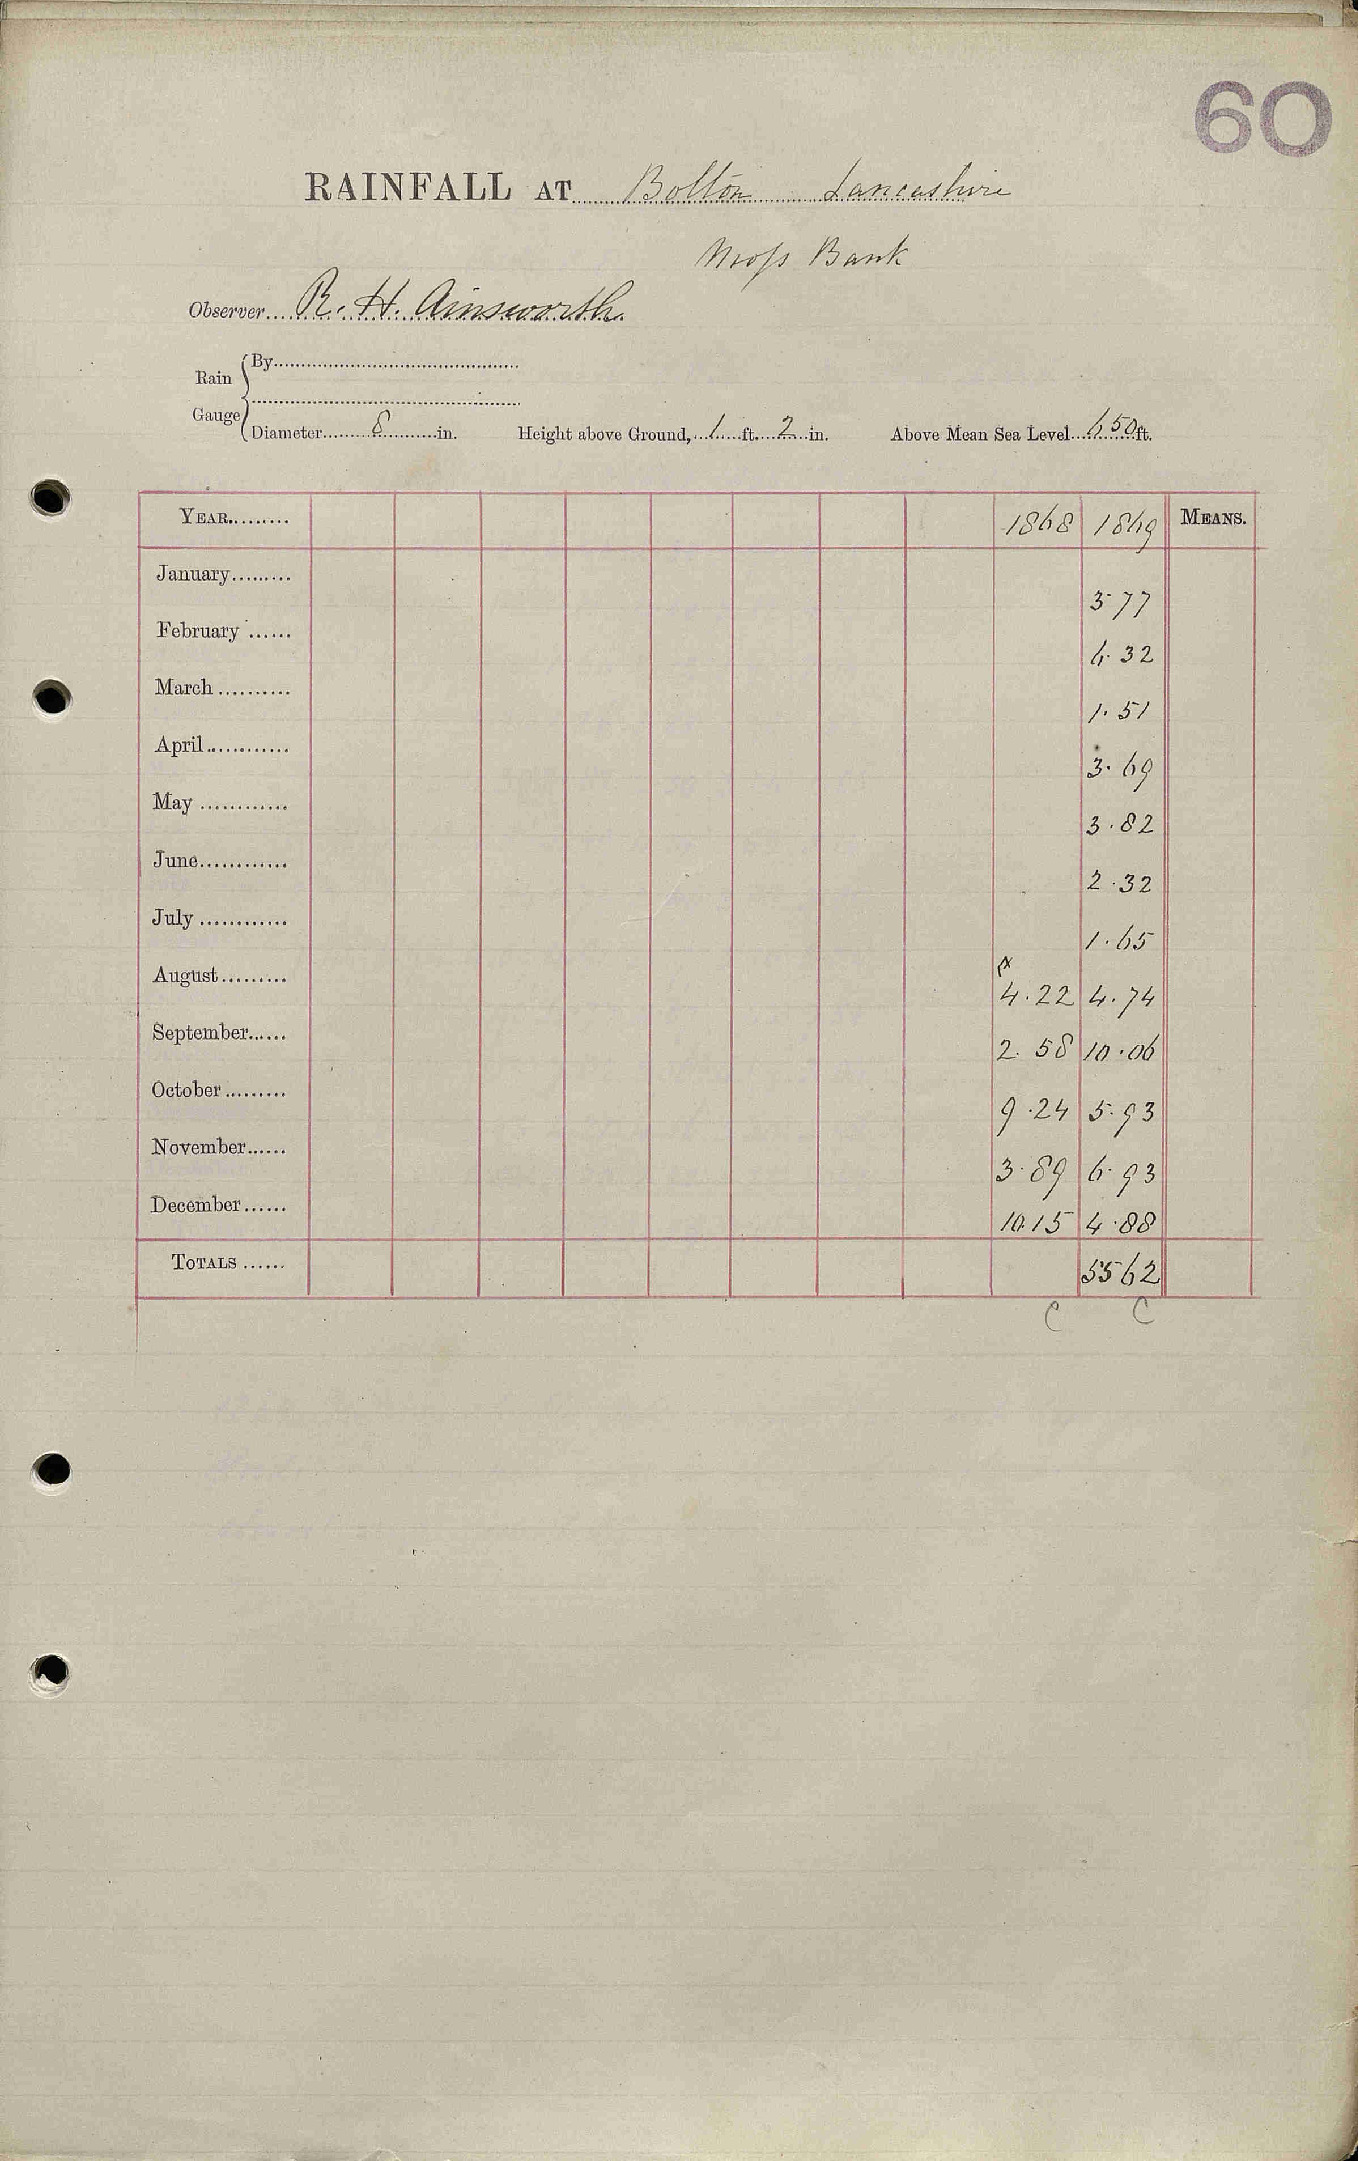 60
RAINFALL AT Bolton Lancashire
Moss Bank
Observer R. H. Ainsworth
Rain Gauge
By
Diameter 8 in. Height above Ground, 1 ft. 2 in. Above Mean Sea Level 650 ft.
YEAR 1868 1869 MEANS.
January 3 77
February 6.32
March 1.51
April 3.69
May 3.82
June 2.32
July 1.65
August 4.22 4.74
September 2.58 10.06
October 9.24 5.93
November 3.89 6.93
December 10.15 4.88
TOTALS 55 62
C C